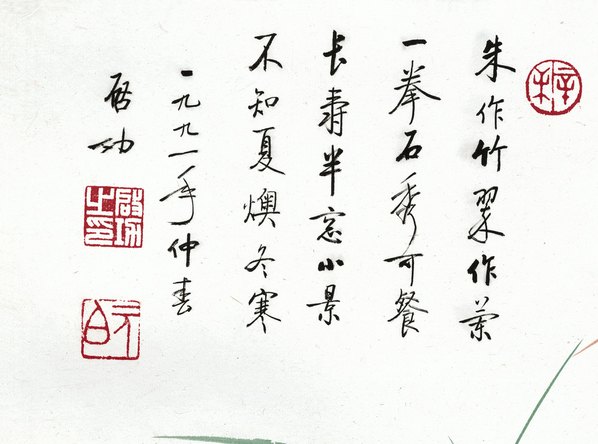 辛未
朱作竹翠作蘭
一拳石秀可餐
長壽半窓小景
不知夏燠冬寒
一九九一年仲春
啓功
啟功之印
元白